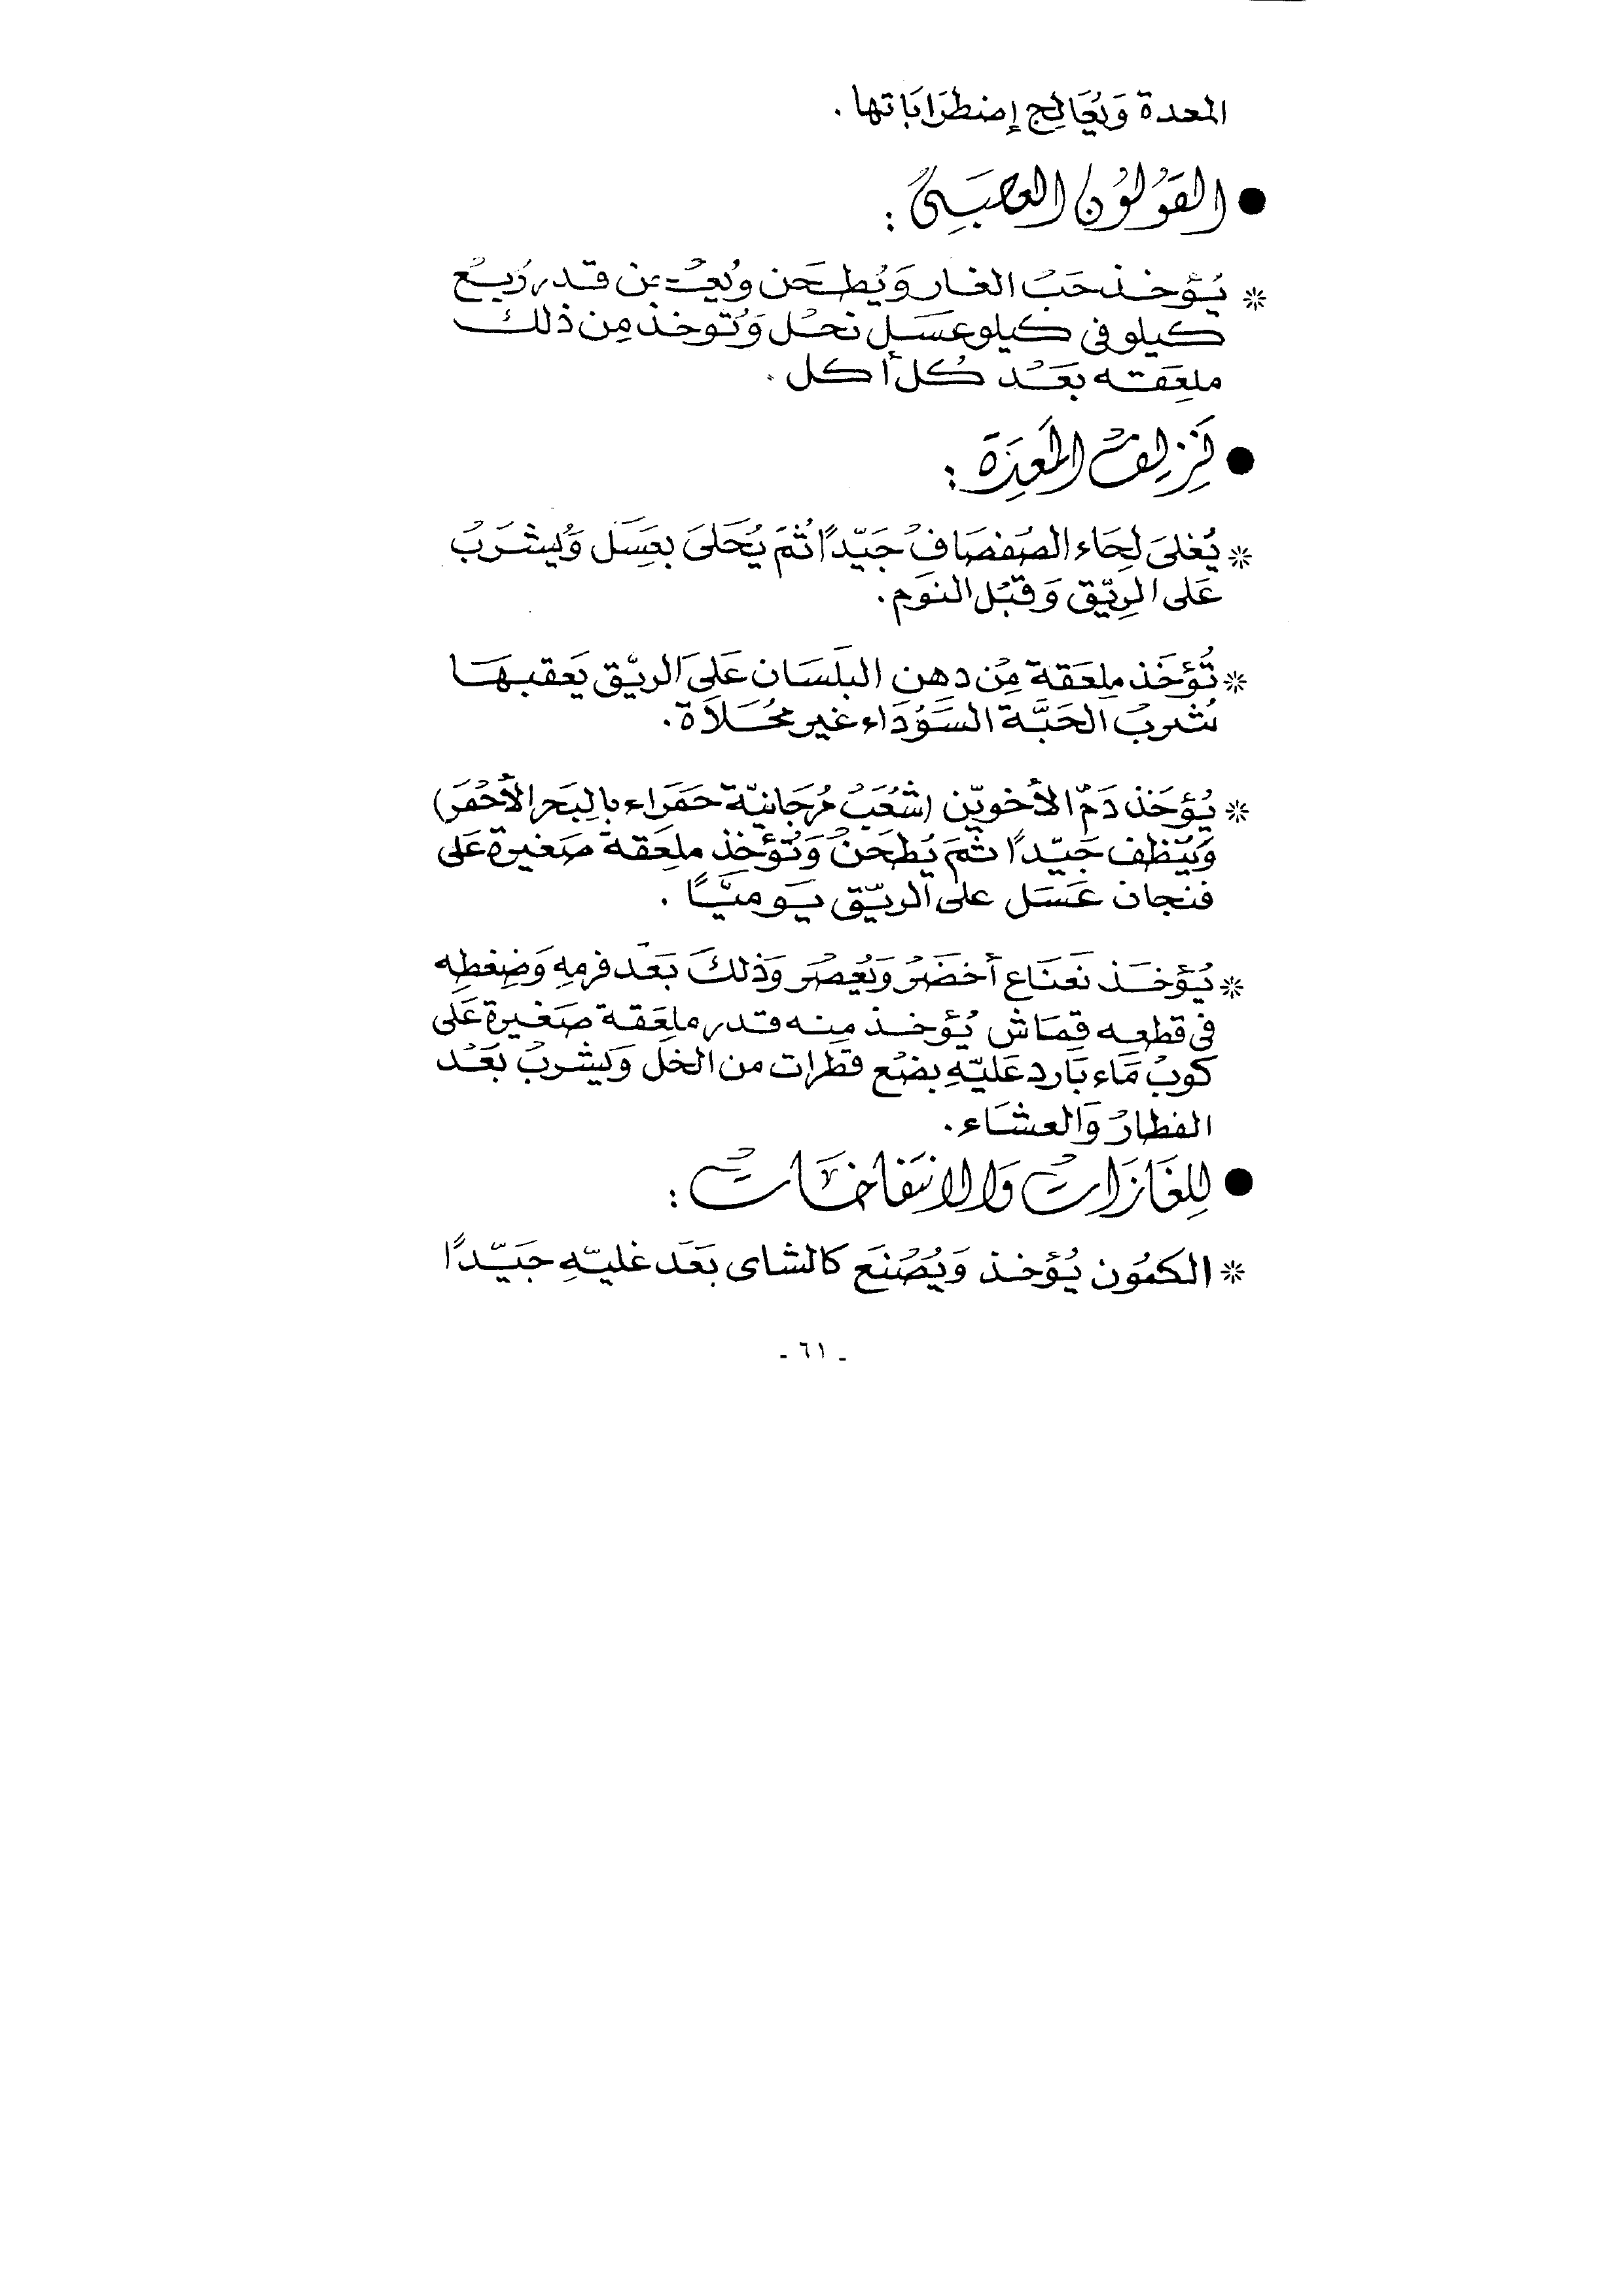 المعدة وَيُعَالِج إضطرَابَاتها .
● القَوْلوُن العصَبِىُ :
* يُؤخذ حَبُ الغار وَيُطحَن ويُعجن قدر رُبعُ
كيلو فى كيلو عسَل نحْل وَتُوخذ مِن ذلك
ملعَقته بَعَدْ كُل أكل .
● نَزِيفُ المَعِدَة :
* يُغلىَ لحَاء الصَفصَافُ جَيّداً ثُمَ يُحَلىَ بعسَل وَيُشرَبُ
عَلى الرِيّق وَقبْل النوَم .
* تُؤخَذ ملعَقة مِن دهن البلَسَان عَلىَ الريّق يَعقبهَا
شُربُ الحَبَّة السَوْدَاء غير محُلَاة .
* يُؤخَذ دَمّ الأخويّن (شُعَبُ مُرجَانيّة حمَرَاء بالبَحر الأحْمَر)
وَيَنظف جَيّداً ثُمَ يُطحَنُ وَتُؤخذ ملعَقة صَغيرة عَلى
فنجان عَسَل على الريّق يَوميَّاً .
* يُؤخَذ نَعنَاع أخضَرُ وَيُعصَر وَذلكَ بَعَد فرمهِ وَضِغطِه
فى قطعه قمَاش يُؤخذ منه قدر ملعَقة صَغيرة عَلى
كوبُ مَاء بَارد عَليّهِ بضْع قطَرات من الخَل وَيشربُ بَعَدْ
الفطارُ وَالعشَاء .
● للِغَازَاتُ وَالانتَفَاخَاتُ :
* الكمُون يُؤخذ وَيُصْنَع كالشاى بَعَد غليّهِ جَيّداً
- ٦١ -